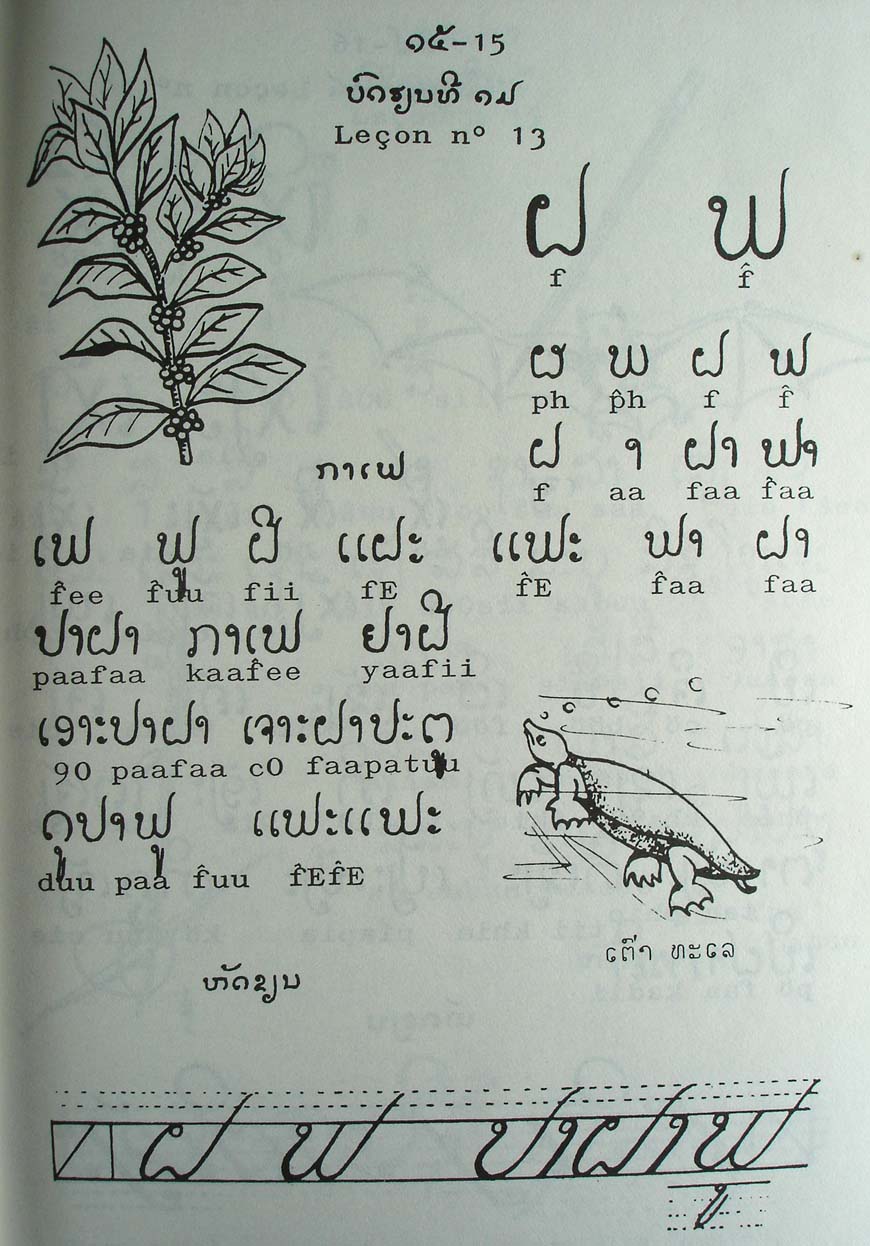 ໑໕-15
ບົດຮຽນທີ ໑໓
Leçon nº 13
ຝ ຟ
f f̂
ຜ ພ ຝ ຟ
ph p̂h f f̂
ຝ າ ຝາ ຟາ
f aa faa f̂aa
ກາເຟ
ເຟ ຟູ ຝີ ແຝະ ແຟະ ຟາ ຝາ
f̂ee f̂uu fii fE f̂E f̂aa faa
ປາຝາ ກາເຟ ຢາຝີ
paafaa kaaf̂ee yaafii
ເອາະປາຝາ ເຈາະຝາປະຕູ
9O paafaa cO faapatuu
ດູປາຟູ ແຟະແຟະ
duu paa f̂uu f̂Ef̂E
ເຕົ່າ ທະເລ
ຫັດຂຽນ
ຝ ຟ ປາຝາຟູ